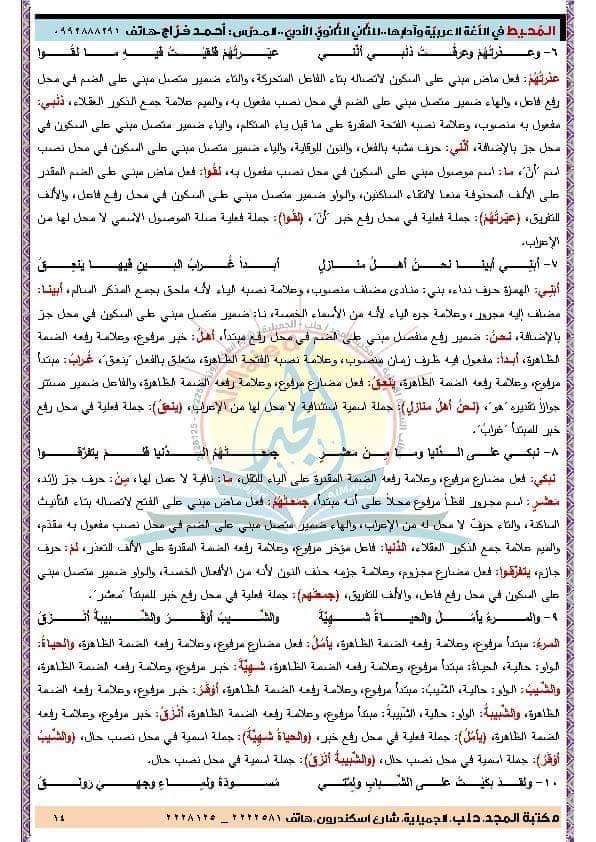 المُحيط في اللّغة العربيّة وآدابها..للثاني الثانويّ الأدبيّ..المدرّس: أحمد فرّاج -هاتف ٠٩٩٢٨٨٨٢٩١
٦- وعـــذرتُهُمْ وعرفْـــتُ ذنْبـــي أنَّنـــي عيّـــرتُهُمْ فلقيْـــتُ فيـــهِ مـــا لقُـــوا
عذرتُهُمْ: فعل ماضٍ مبني على السكون لاتصاله بتاء الفاعل المتحركة، والتاء ضمير متصل مبني على الضم في محل
رفع فاعل، والهاء ضمير متصل مبني على الضم في محل نصب مفعول به، والميم علامة جمع الذكور العقلاء، ذنْبي:
مفعول به منصوب، وعلامة نصبه الفتحة المقدرة على ما قبل ياء المتكلم، والياء ضمير متصل مبني على السكون في
محل جرّ بالإضافة، أنَّني: حرف مشبه بالفعل، والنون للوقاية، والياء ضمير متصل مبني على السكون في محل نصب
اسم "أنّ"، ما: اسم موصول مبني على السكون في محل نصب مفعول به، لقُوا: فعل ماض مبني على الضم المقدر
على الألف المحذوفة منعا لالتقاء الساكنين، والواو ضمير متصل مبني على السكون في محل رفع فاعل، والألف
للتفريق، (عيّرتُهُمْ): جملة فعلية في محل رفع خبر "أنّ"، (لقُوا): جملة فعلية صلة الموصول الاسمي لا محل لها من
الإعراب.
٧- أبنِـــي أبينـــا نحـــنُ أهـــلُ منـــازلٍ أبـــداً غُـــرابُ البـــينِ فيهـــا ينعِـــقُ
أبنِي: الهمزة حرف نداء، بني: منادى مضاف منصوب، وعلامة نصبه الياء لأنه ملحق بجمع المذكر السالم، أبينا:
مضاف إليه مجرور، وعلامة جره الياء لأنه من الأسماء الخمسة، نا: ضمير متصل مبني على السكون في محل جرّ
بالإضافة، نحنُ: ضمير رفع منفصل مبني على الضم في محل رفع مبتدأ، أهلُ: خبر مرفوع، وعلامة رفعه الضمة
الظاهرة، أبداً: مفعول فيه ظرف زمان منصوب، وعلامة نصبه الفتحة الظاهرة، متعلق بالفعل "ينعق"، غُرابُ: مبتدأ
مرفوع، وعلامة رفعه الضمة الظاهرة، ينعِقُ: فعل مضارع مرفوع، وعلامة رفعه الضمة الظاهرة، والفاعل ضمير مستتر
جوازاً تقديره "هو"، (نحنُ أهلُ منازلٍ): جملة اسمية استئنافية لا محل لها من الإعراب، (ينعِقُ): جملة فعلية في محل رفع
خبر للمبتدأ "غرابُ".
٨- نبكـــي علـــى الـــدُّنيا ومـــا مِـــنْ معشـــرٍ جمعـــتْهُمُ الـــدُّنيا فلـــمْ يتفرّقـــوا
نبكي: فعل مضارع مرفوع، وعلامة رفعه الضمة المقدرة على الياء للثقل، ما: نافية لا عمل لها، مِنْ: حرف جر زائد،
معْشرٍ: اسم مجرور لفظاً مرفوع محلاً على أنه مبتدأ، جمعتْهُمُ: فعل ماض مبني على الفتح لاتصاله بتاء التأنيث
الساكنة، والتاء حرفٌ لا محل له من الإعراب، والهاء ضمير متصل مبني على الضم في محل نصب مفعول به مقدّم،
والميم علامة جمع الذكور العقلاء، الدُّنيا: فاعل مؤخر مرفوع، وعلامة رفعه الضمة المقدرة على الألف للتعذر، لمْ: حرف
جازم، يتفرّقوا: فعل مضارع مجزوم، وعلامة جزمه حذف النون لأنه من الأفعال الخمسة، والواو ضمير متصل مبني
على السكون في محل رفع فاعل، والألف للتفريق، (جمعتهم): جملة فعلية في محل رفع خبر للمبتدأ "معْشر".
٩- والمـــرءُ يأمـــلُ والحيـــاةُ شـــهيّةٌ والشّـــيبُ أوْقـــرُ والشّـــبيبةُ أنْـــزقُ
المرءُ: مبتدأ مرفوع، وعلامة رفعه الضمة الظاهرة، يأملُ: فعل مضارع مرفوع، وعلامة رفعه الضمة الظاهرة، والحياةُ:
الواو: حالية، الحياةُ: مبتدأ مرفوع، وعلامة رفعه الضمة الظاهرة، شهيّةٌ: خبر مرفوع، وعلامة رفعه الضمة الظاهرة،
والشّيبُ: الواو: حالية، الشّيبُ: مبتدأ مرفوع، وعلامة رفعه الضمة الظاهرة، أوْقرُ: خبر مرفوع، وعلامة رفعه الضمة
الظاهرة، والشّبيبةُ: الواو: حالية، الشّبيبةُ: مبتدأ مرفوع، وعلامة رفعه الضمة الظاهرة، أنْزقُ: خبر مرفوع، وعلامة رفعه
الضمة الظاهرة، (يأملُ): جملة فعلية في محل رفع خبر، (والحياةُ شهيّةٌ): جملة اسمية في محل نصب حال، (والشّيبُ
أوْقرُ): جملة اسمية في محل نصب حال، (والشّبيبةُ أنْزقُ): جملة اسمية في محل نصب حال.
١٠- ولقـــد بكيْـــتُ علـــى الشّـــبابِ ولِمّتـــي مُســـودّةٌ ولمـــاءِ وجهـــيَ رونـــقُ
مكتبة المجد. حلب، الجميلية، شارع اسكندرون، هاتف ٢٢٢٢٥٨١ _ ٢٢٢٨١٢٥ ١٤